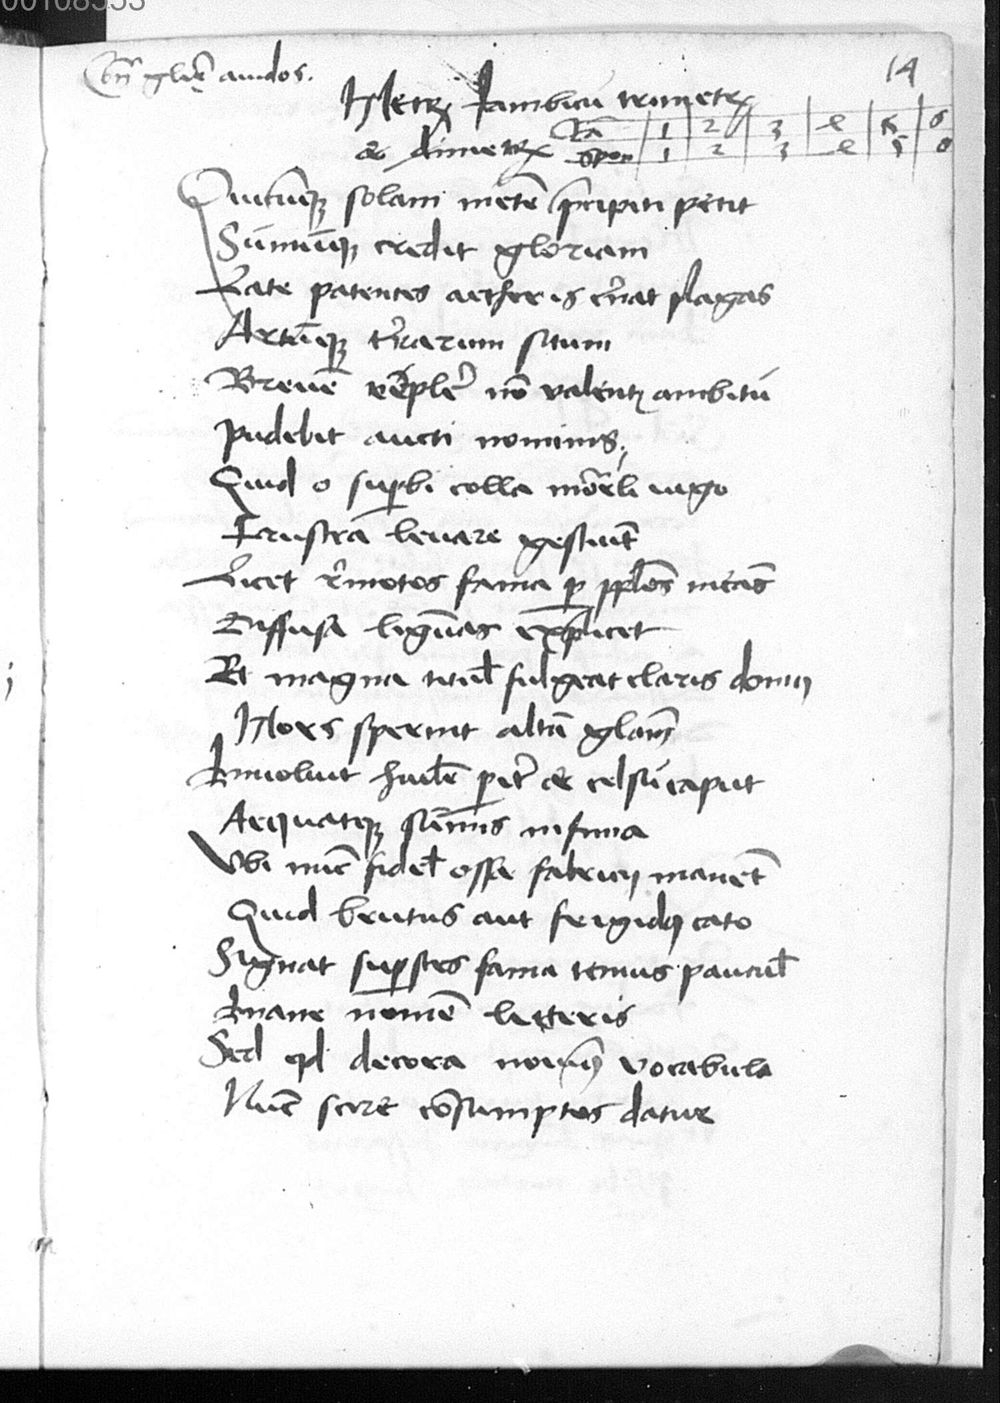 00108553
gl'ie auidos.
14
Metrꝝ Iambicū trimetrꝝ
& dimetrꝝ
Ia 1 2 3 5 6
Spon 1 2 3 5
Quicūqꝫ solam mētē p̄cipiti petit
Sūmūqꝫ credit gloriam
Late patentes aetheris c̄nat plagas
Artūqꝫ t̄rarum situm
Breuē rēplē nō valentꝭ ambitū
Pudebit aucti nominis.
Quid o sup̱bi colla mōrli iugo
Frustra leuare gestiūt
Licet r̄motos fama ꝑ pp̄los meās
Diffusa liguās explicet
Et magna titul' fulgeat claris domꝰ
Mors spernit altā glām
Inuoluit hūilē ꝑit̄ & celsū caput
Aequatqꝫ sūmis infima
Vbi nūc fidel' ossa fabricij manēt
Quid brutus aut frigidꝰ cato
Signat suꝑstes fama tenuis paucul'
Inane nomē litteris
Sed qd decora nouimꝰ vocabula
Nūc scire cōsumptos datur